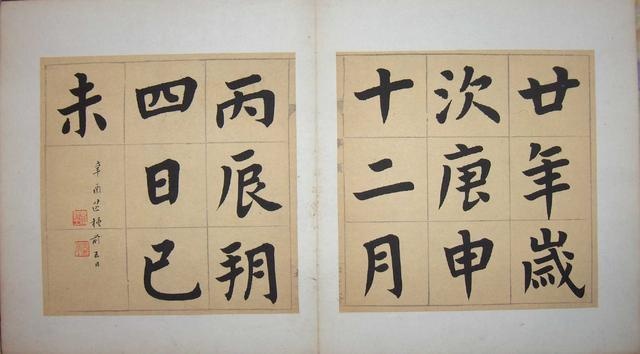 廿年歲
次庚申
十二月
丙辰朔
四日己
未
辛酉芒種前五日